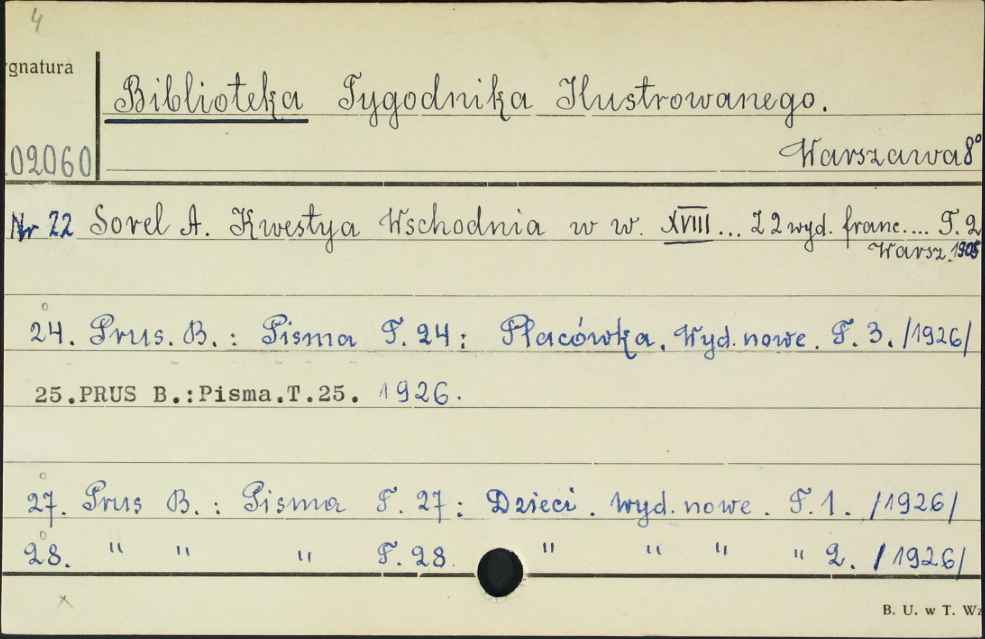 4
gnatura
Biblioteka Tygodnika Ilustrowanego.
02060
Warszawa 8°
Nr 22 Sorel A. Kwestya Wschodnia w w. XVIII... Z 2 wyd. franc.... T. 2
Warsz. 1905
24. Prus. B. : Pisma T. 24 : Placówka. Wyd. nowe. T. 3. /1926/
25.PRUS B.:Pisma.T.25. 1926.
27. Prus B. : Pisma T. 27 : Dzieci. wyd. nowe. T. 1. /1926/
28. " " " T. 28. " " " " 2. /1926/
x
B. U. w T. Wz